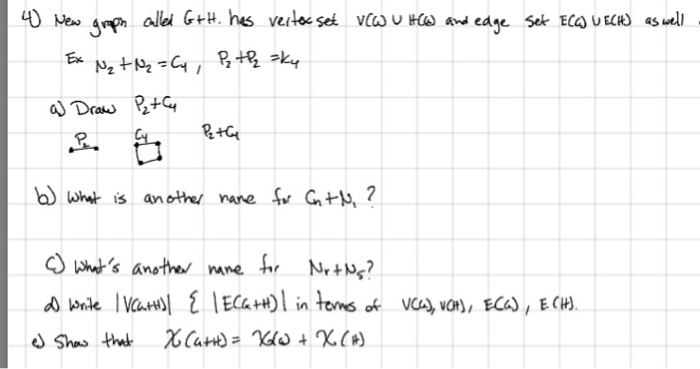 4) New graph called G+H. has vertex set V(G) U H(G) and edge set E(G) U E(H) as well
Ex N₂ + N₂ = C₄, P₂ + P₂ = K₄
a) Draw P₂+C₄
P₂ C₄ P₂+C₄
b) What is another name for Cn + N₁ ?
c) What's another name for Nr + Ns?
d) Write |V(G+H)| & |E(G+H)| in terms of V(G), V(H), E(G), E(H).
e) Show that χ(G+H) = χ(G) + χ(H)